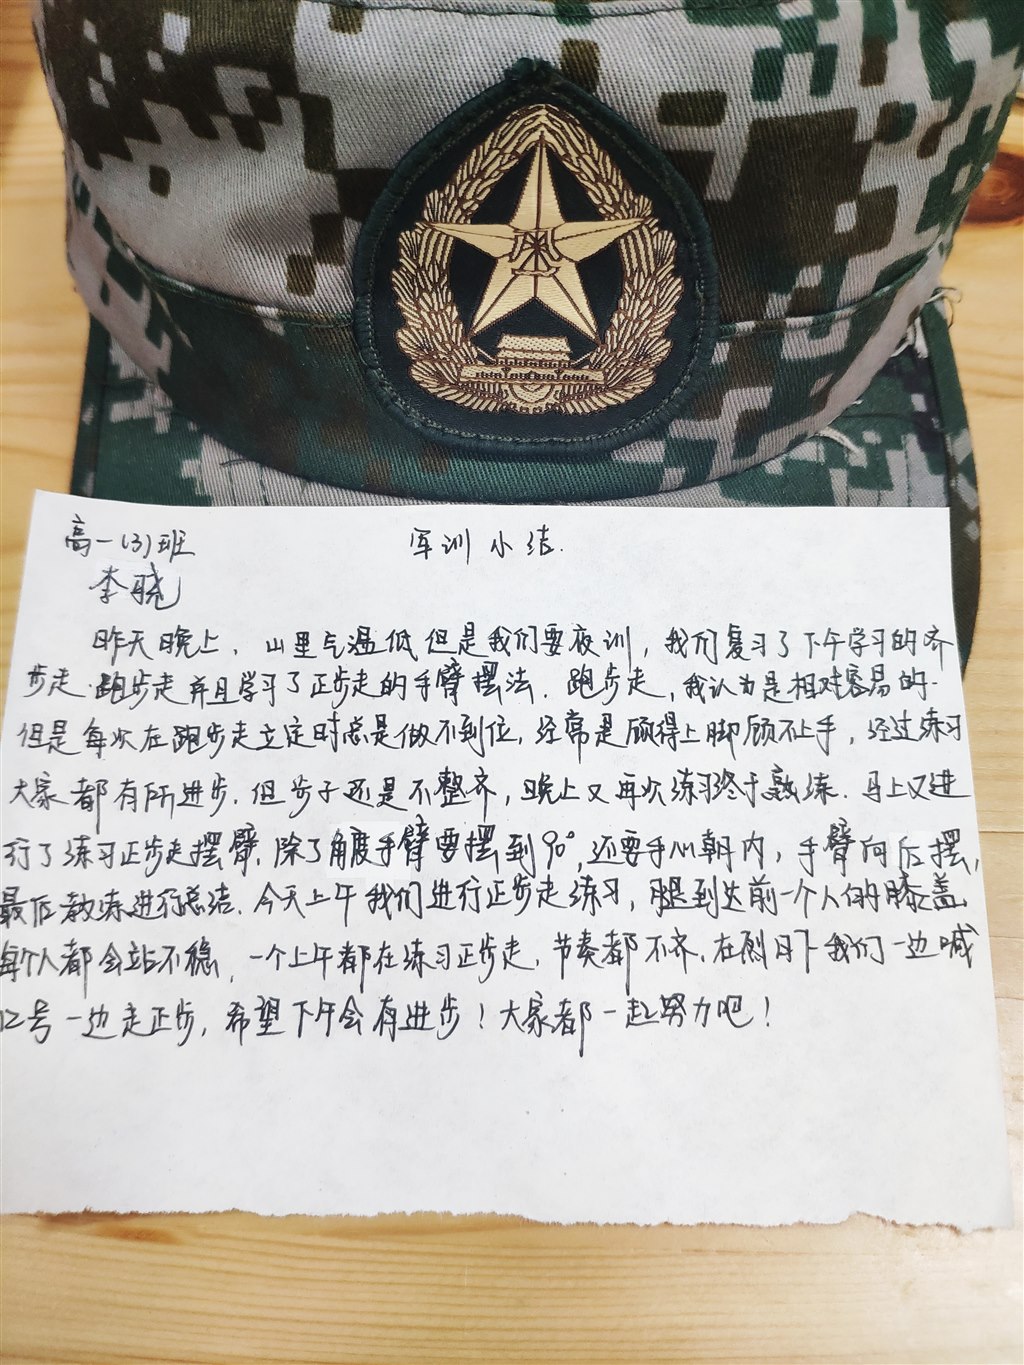 高一(3)班 军训小结.
李晓
昨天晚上，山里气温低但是我们要夜训，我们复习了下午学习的齐
步走.跑步走并且学习了正步走的手臂摆法.跑步走，我认为是相对容易的.
但是每次在跑步走立定时总是做不到位，经常是顾得上脚顾不上手，经过练习
大家都有所进步.但步子还是不整齐，晚上又再次练习终于熟练.马上又进
行了练习正步走摆臂.除了角度手臂要摆到90°，还要手心朝内，手臂向后摆，
最后教练进行总结.今天上午我们进行正步走练习，腿到达前一个人的膝盖
每个人都会站不稳，一个上午都在练习正步走，节奏都不齐.在烈日下我们一边喊
口号一边走正步，希望下午会有进步！大家都一起努力吧！